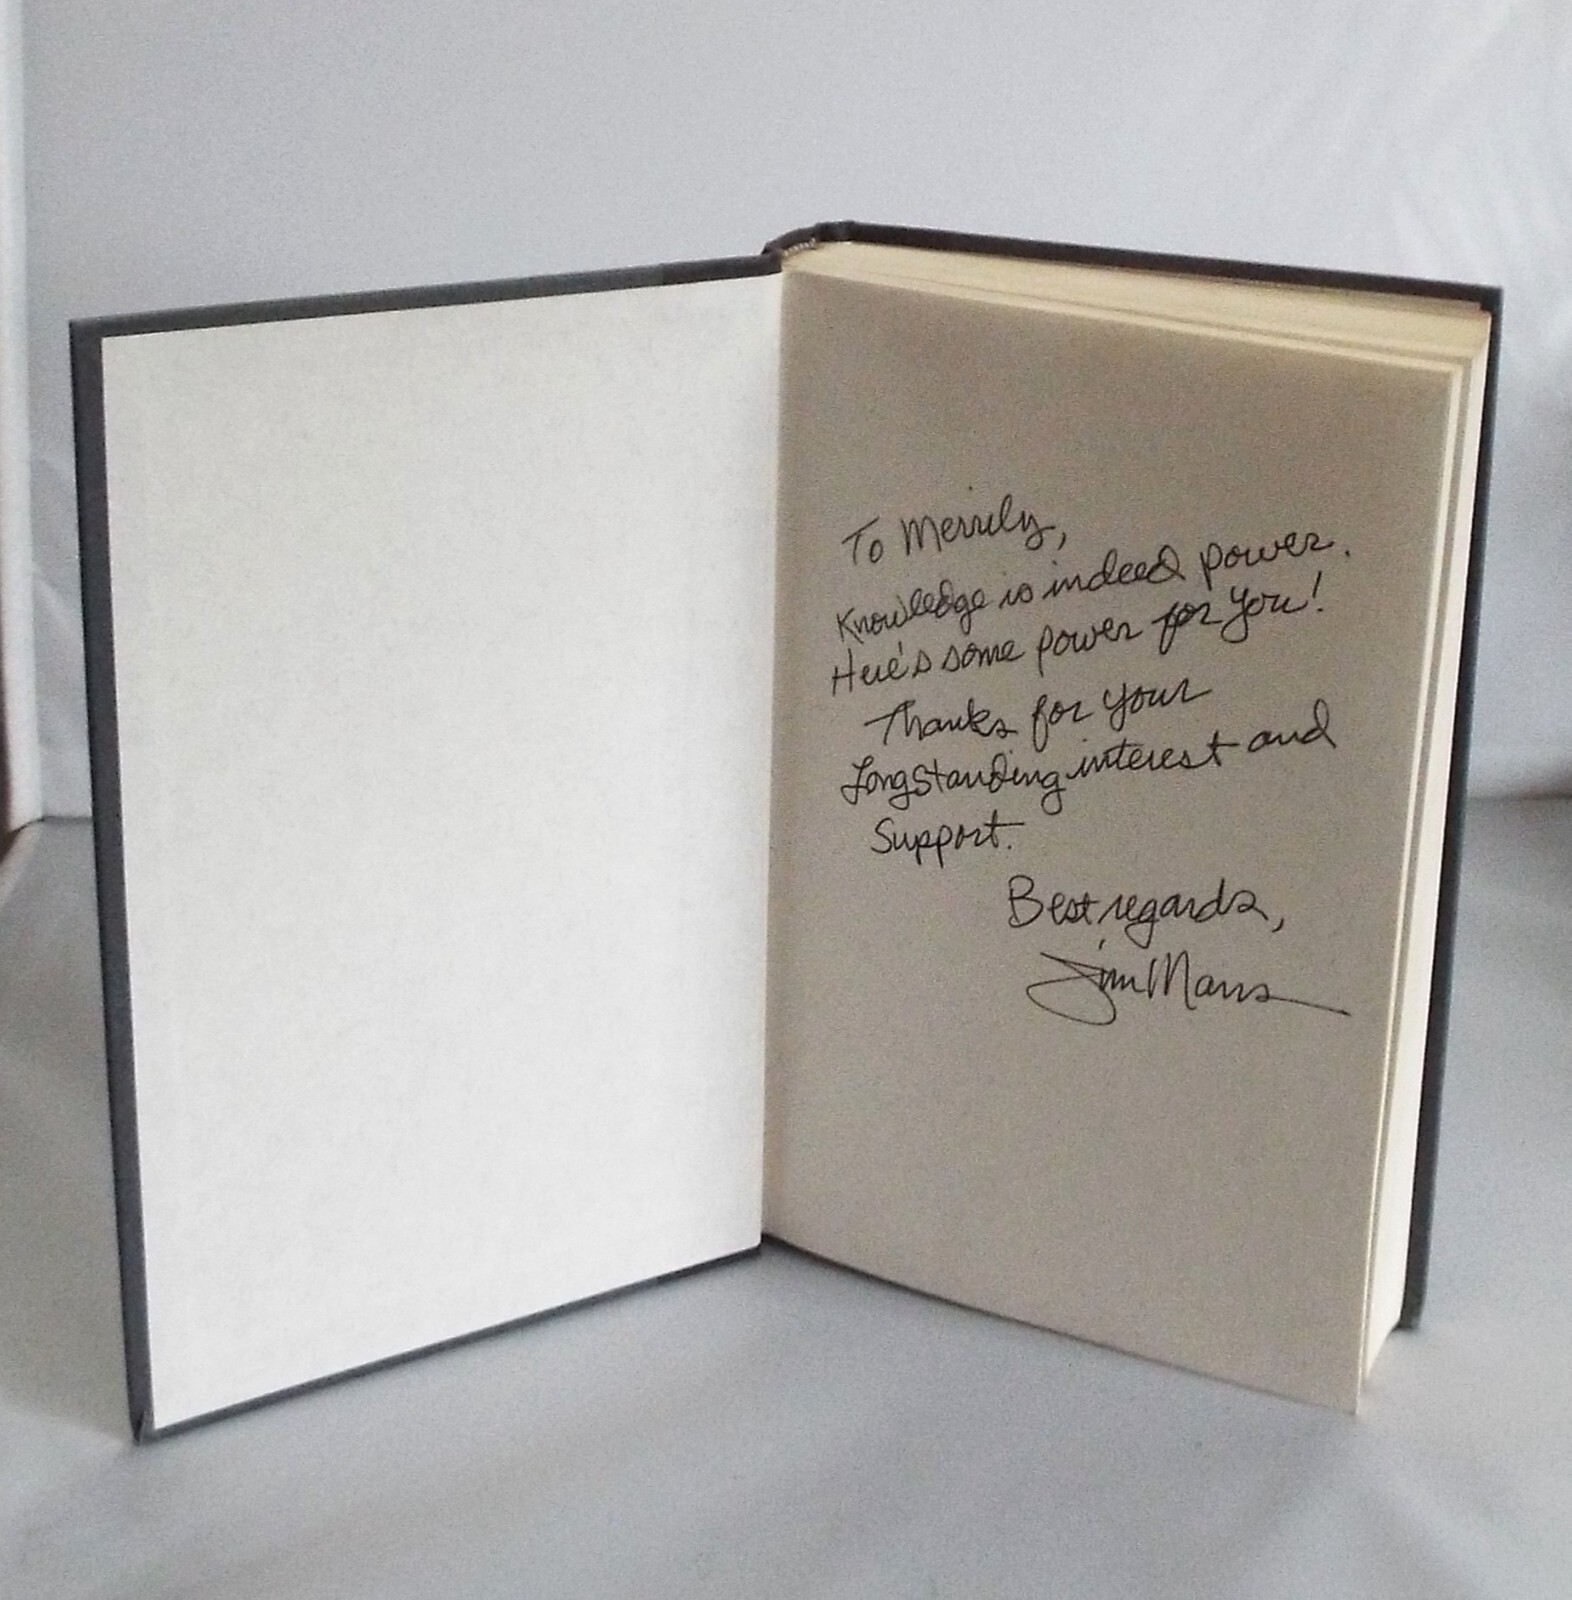 To Merrily,
Knowledge is indeed power.
Here's some power for you!
Thanks for your
Longstanding interest and
Support.
Best regards,
Jim Marrs